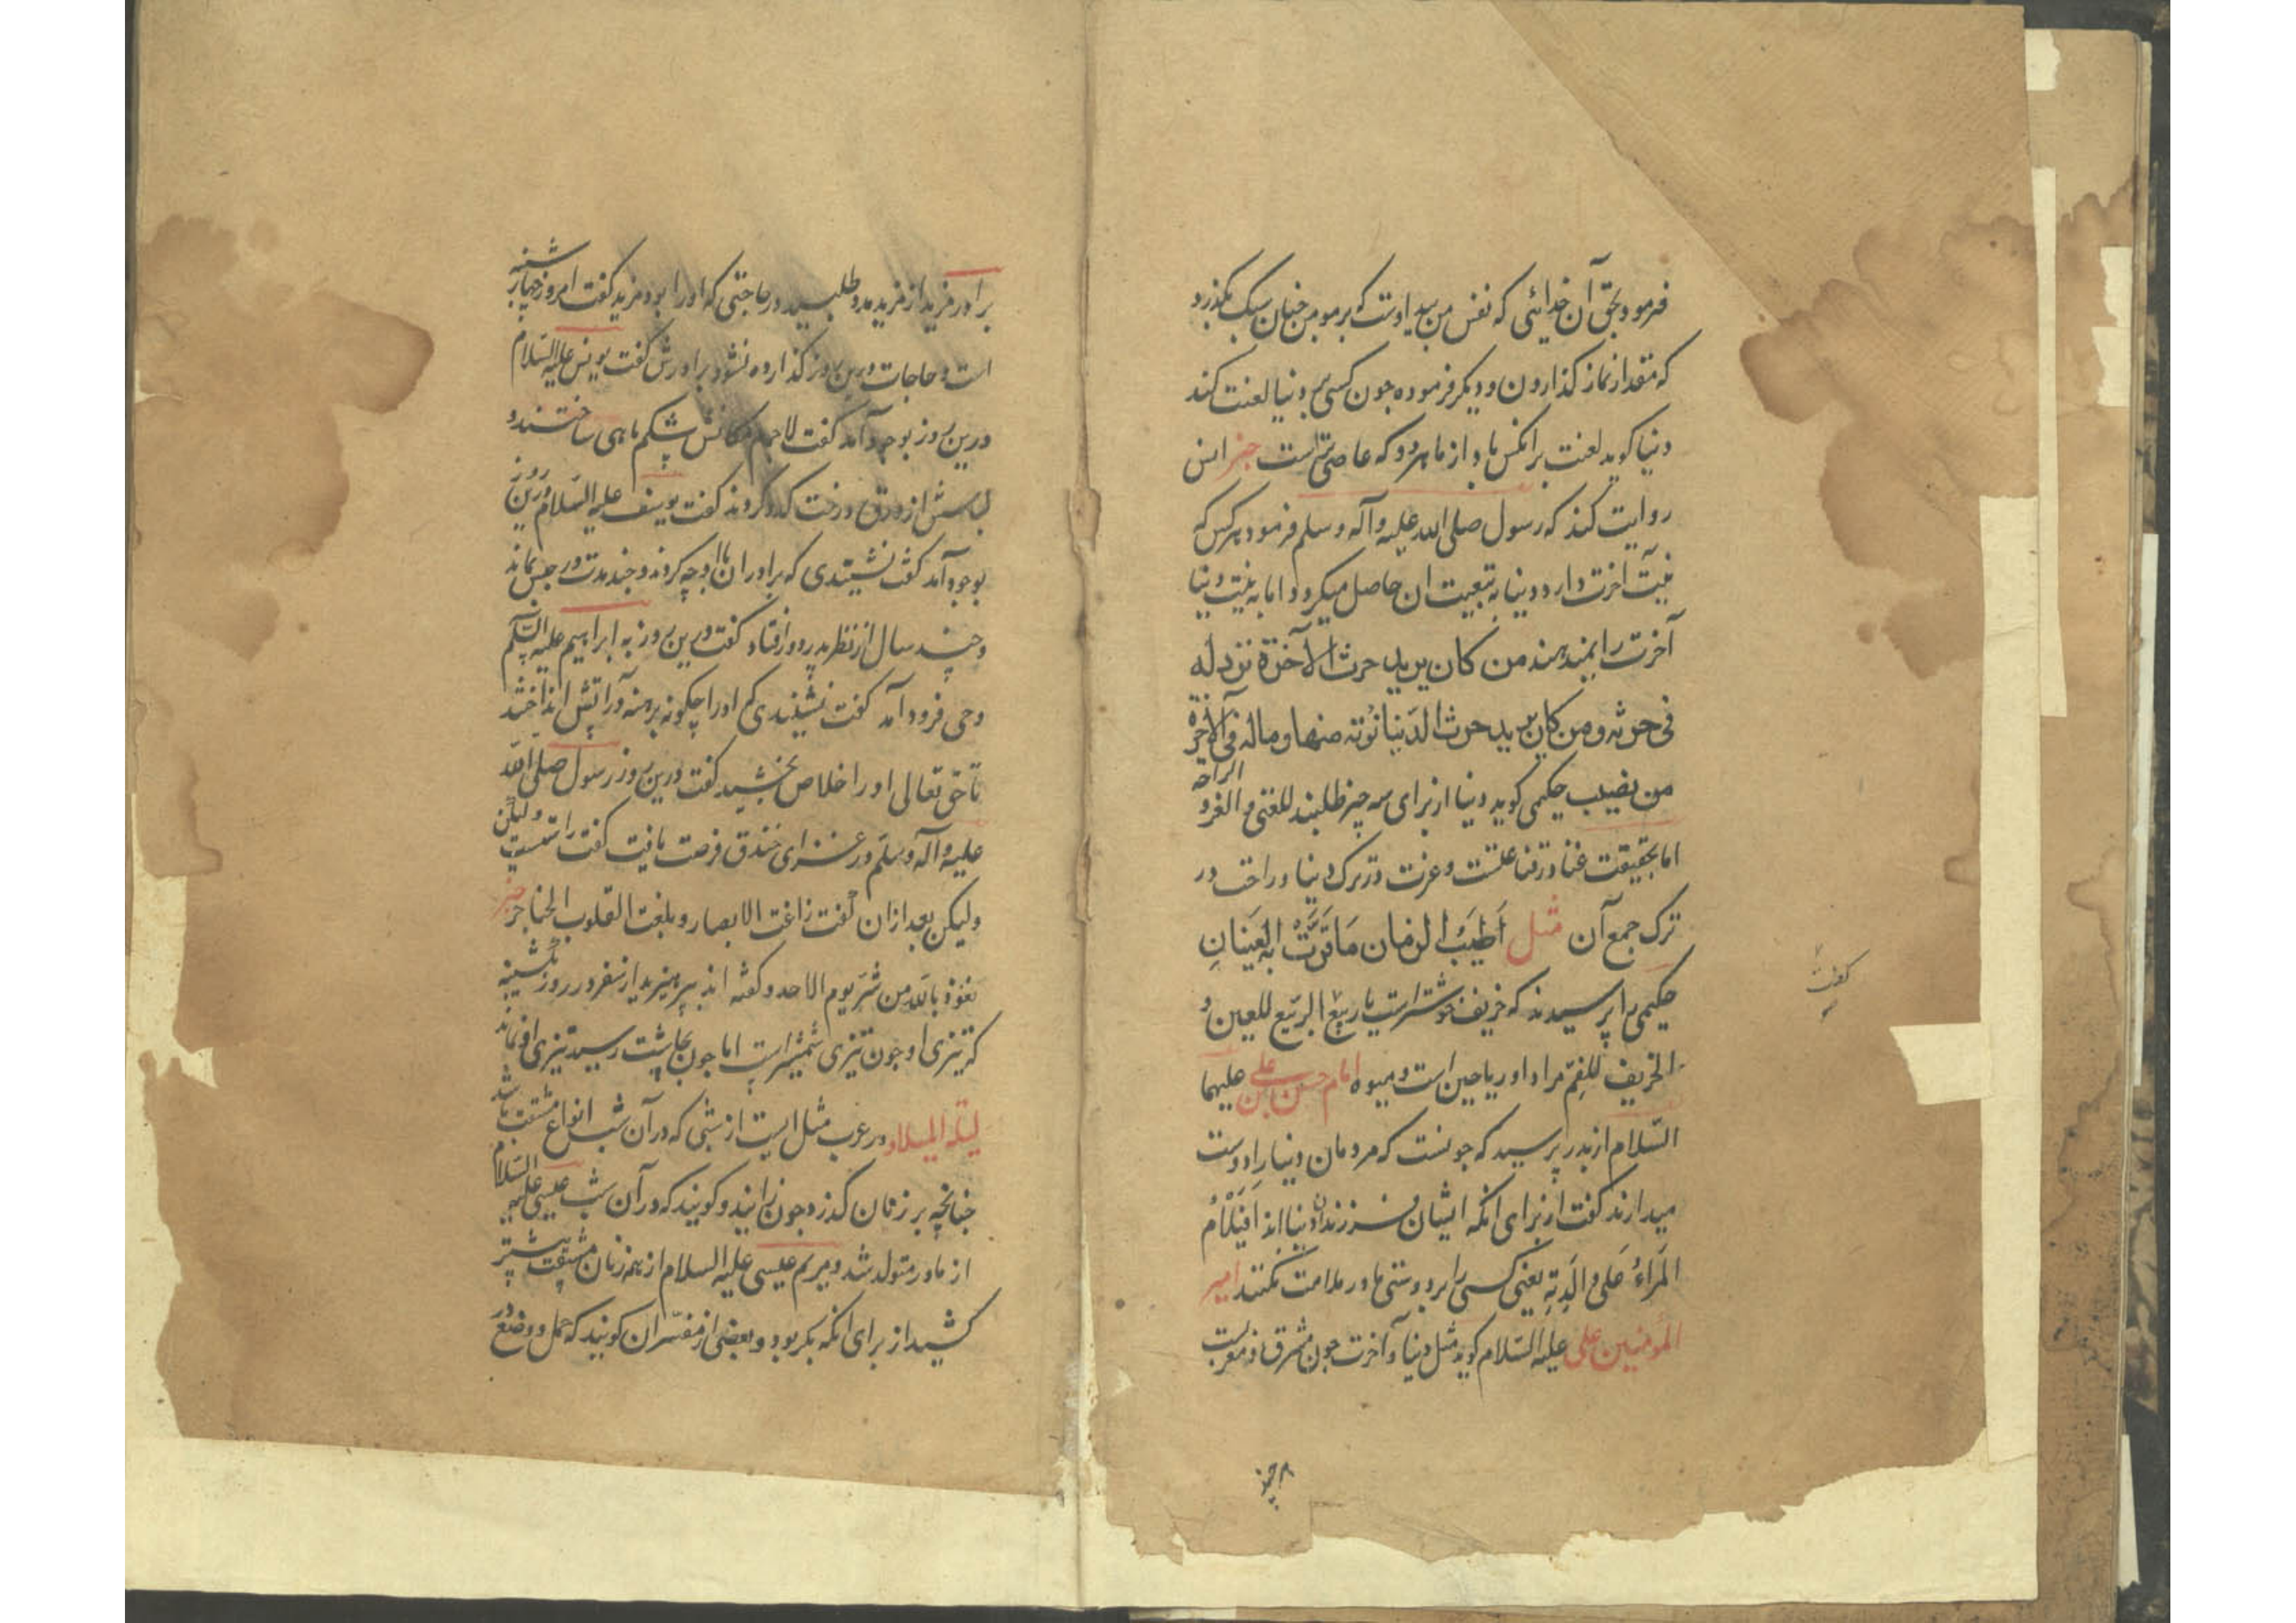 فرمود بحق آن خدائی که نفس من بید اوست که بر مومن چنان سبک بگذرد
که مقدار نماز گذاردن و دیگر فرموده چون کسی بر دنیا لعنت کند
دنیا گوید لعنت برانکس باد از ما هر دو که عاصی تر است خبر انس
روایت کند که رسول صلی الله علیه و آله و سلم فرمود هرکس که
نیت آخرت دارد دنیا به تبعیت ان حاصل میگردد اما به نیت دنیا
آخرت را نمیدهند من کان یرید حرث الآخرة نزد له
فی حرثه و من کان یرید حرث الدنیا نؤته منها و ماله فی الآخرة
من نصیب حکیمی گوید دنیا از برای سه چیز طلبند للغنی و العز و الراحة
اما بحقیقت غنا در قناعتست و عزت در ترک دنیا و راحت در
ترک جمع آن مثل أطیب الزمان ما قرت به العینان
حکیمی را پرسیدند که خریف خوشتر است یا ربیع الربیع للعین و
الخریف للفم مراد او ریاحین است و میوه امام حسن بن علی علیهما
السلام از پدر پرسید که چونست که مردمان دنیا را دوست
میدارند گفت از برای انکه ایشان فرزندان دنیا اند افیلام
المراء علی والدته یعنی کسی را بر دوستی مادر ملامت نکنند امیر
المومنین علی علیه السلام گوید مثل دنیا و آخرت چون مشرق و مغربست
برادر مزید از مزید مدد طلبید در حاجتی که او را بود مزید گفت امروز چهارشنبه
است و حاجات درین روز گذارده نشود برادرش گفت یونس علیه السلام
درین روز بوجود آمد گفت لاجرم مکانش شکم ماهی ساختند و
لباسش از ورق درخت کدو کردند گفت یوسف علیه السلام درین روز
بوجود آمد گفت نشنیدی که برادران با او چه کردند و چند مدت در حبس بماند
و چند سال از نظر پدر دور افتاد گفت درین روز به ابراهیم علیه السلم
وحی فرود آمد گفت نشنیدی که او را چگونه برهنه در آتش انداختند
تا حق تعالی او را خلاص بخشید گفت درین روز رسول صلی الله
علیه و آله و سلم در غزای خندق فرصت یافت گفت راستست ولیکن
ولیکن بعد از ان گفت زاغت الابصار و بلغت القلوب الحناجر خبر
نعوذ بالله من شر یوم الاحد و گفته اند بپرهیزید از سفر در روز یکشنبه
که تیزی او چون تیزی شمشیر است اما چون بچاشت رسید تیزی او نماند
لیلة المیلاد در عرب مثل است از شبی که در آن شب انواع مشقت باشد
چنانچه بر زنان گذرد چون زایند و گویند که در آن شب عیسی علیه السلام
از مادر متولد شد و مریم عیسی علیه السلام از همه زنان مشقت بیشتر
کشید از برای انکه بکر بود و بعضی از مفسران گویند که حمل و وضع در